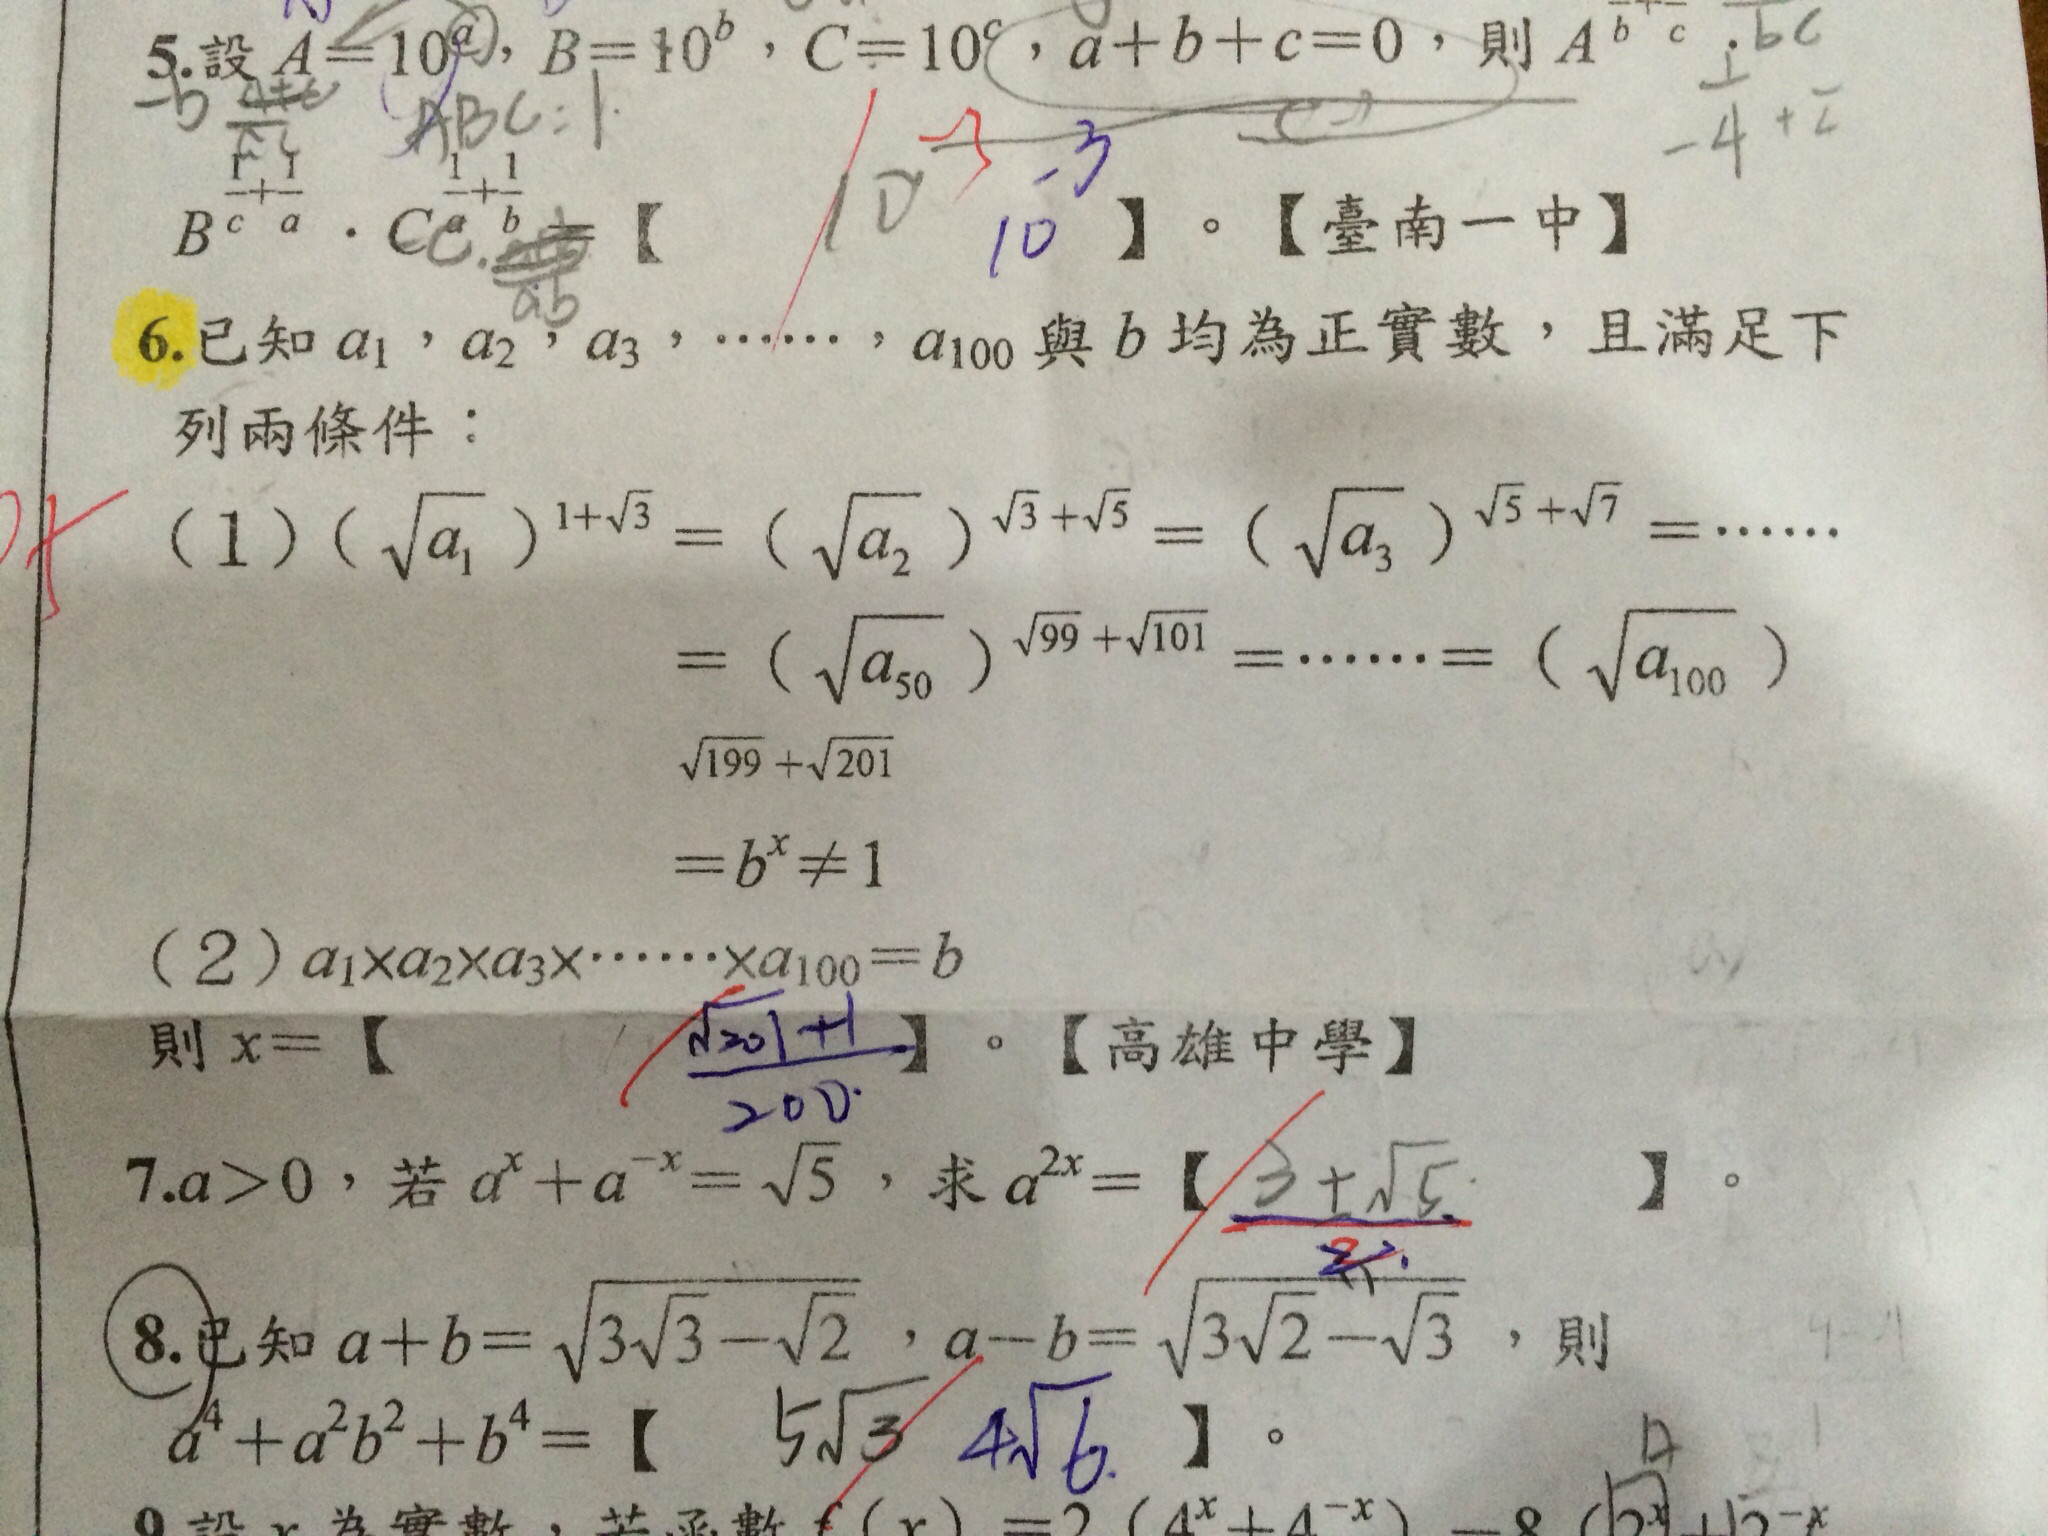 5.設 A=10^a，B=10^b，C=10^c，a+b+c=0，則 A^{\frac{1}{b}+\frac{1}{c}}．
ABC=1
B^{\frac{1}{c}+\frac{1}{a}}．C^{\frac{1}{a}+\frac{1}{b}}=【 10 10^{-3} 】。【臺南一中】
6.已知 a_1，a_2，a_3，……，a_{100} 與 b 均為正實數，且滿足下
列兩條件：
(1)(\sqrt{a_1})^{1+\sqrt{3}}=(\sqrt{a_2})^{\sqrt{3}+\sqrt{5}}=(\sqrt{a_3})^{\sqrt{5}+\sqrt{7}}=……
=(\sqrt{a_{50}})^{\sqrt{99}+\sqrt{101}}=……=(\sqrt{a_{100}})
\sqrt{199}+\sqrt{201}
=b^x≠1
(2)a_1×a_2×a_3×……×a_{100}=b
則 x=【 \frac{\sqrt{201}+1}{200} 】。【高雄中學】
7.a>0，若 a^x+a^{-x}=\sqrt{5}，求 a^{2x}=【 \frac{3+\sqrt{5}}{2} 】。
8.已知 a+b=\sqrt{3\sqrt{3}-\sqrt{2}}，a−b=\sqrt{3\sqrt{2}-\sqrt{3}}，則
a^4+a^2b^2+b^4=【 5\sqrt{3} 4\sqrt{6} 】。
9.設 x 為實數，若函數 f(x)=2(4^x+4^{-x})−8(2^x+2^{-x}